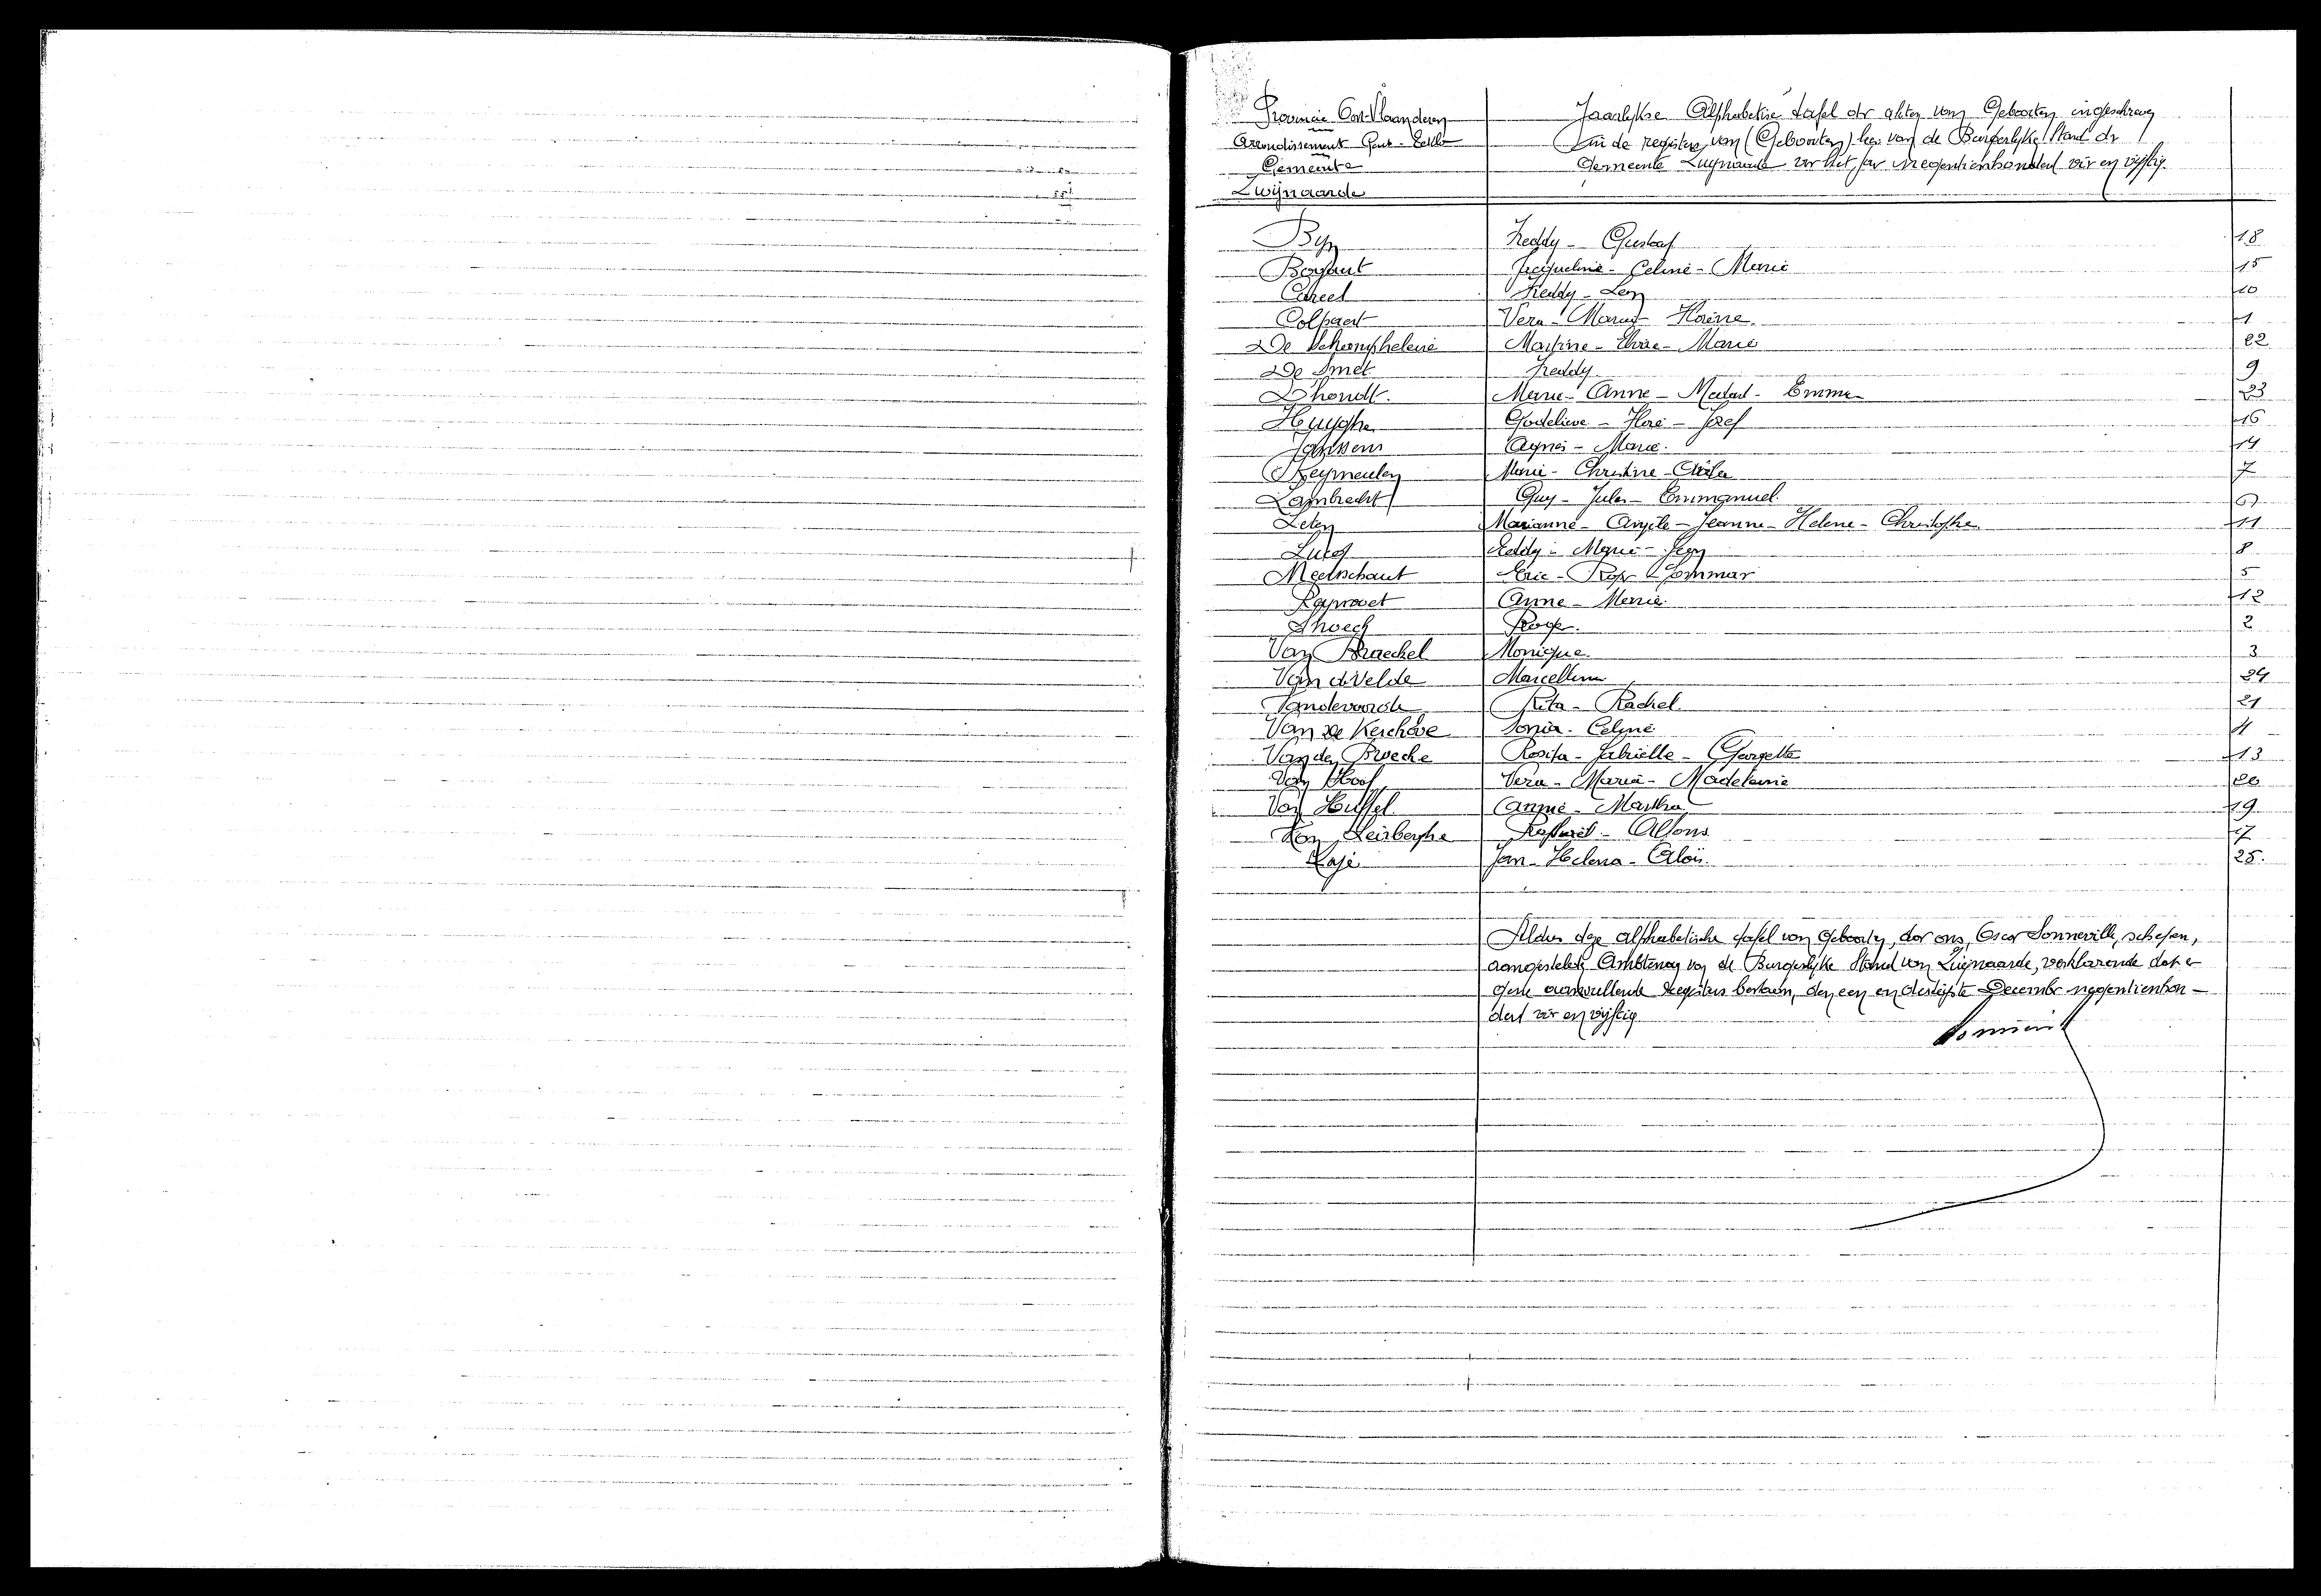 Provincie Oost-Vlaanderen
Arrondissement Gent-Eeklo
Gemeente
Zwijnaarde
Jaarlijkse Alphabetise tafel der akten van Geboorten ingeschreven
in de registers van (Geboorten) van de Burgerlijke Stand der
Gemeente Zwijnaarde voor het jaar negentienhonderd vier en vijftig.
Byn Freddy - Gustaaf 18
Jacqueline - Celine - Marie 15
Careel Freddy - Leon 10
Colpaert Vera - Maria 1
De Schamphelere Martine - Marie 22
De Smet Freddy 9
Dhondt. Marie - Anne - Emma 23
Huyghe Godelieve - Jozef 16
Janssens Agnes - Marie. 14
Keymeulen Marie - Christine 7
Lambrecht Guy - Jules - Emmanuel. 6
Leten Marianne - Angèle - Jeanne - Helene - Christophe. 11
Lucas Eddy - Marie - 8
Meerschaut Eric - Roger - Gommar 5
Anne - Marie. 12
Roger. 2
Van Braeckel Monique. 3
Van de Velde Marcellina 24
Vandevoorde Rita - Rachel 21
Van de Kerchove Sonia - Celine 4
Van den Broecke Rosita - Gabrielle - Georgette 13
Van Hoof Vera - Maria - Madeleine 20
Van Huffel Annie - Martha 19
Van Leirberghe Rafaël - Alfons. 17
Jan - Helena - Aloïs. 25.
Aldus deze alphabetische tafel van Geboorten, door ons, Oscar Sonneville, schepen,
aangestelde Ambtenaar van de Burgerlijke Stand van Zwijnaarde, verklarende dat er
geene aanvullende Registers bestaan, den een en dertigste December negentienhon-
derd vier en vijftig